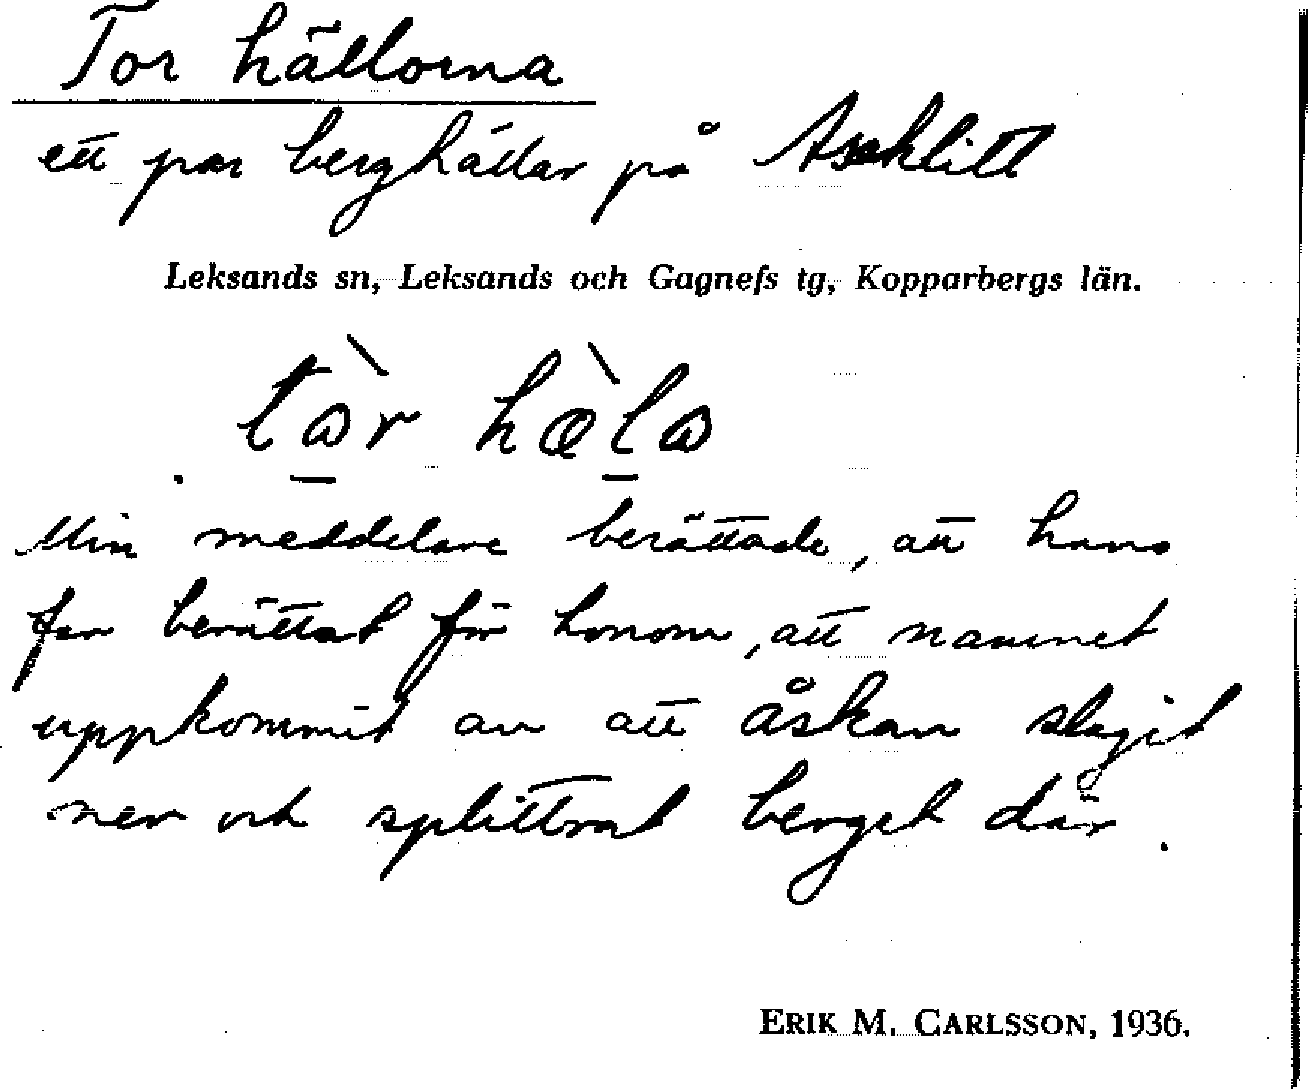 Tor hällorna
ett par berghällar på Asaklitt
Leksands sn, Leksands och Gagnefs tg, Kopparbergs län.
Min meddelare berättade, att hans
far berättat för honom, att namnet
uppkommit av att åskan slagit
ner och splittrat berget där.
ERIK M. CARLSSON, 1936.